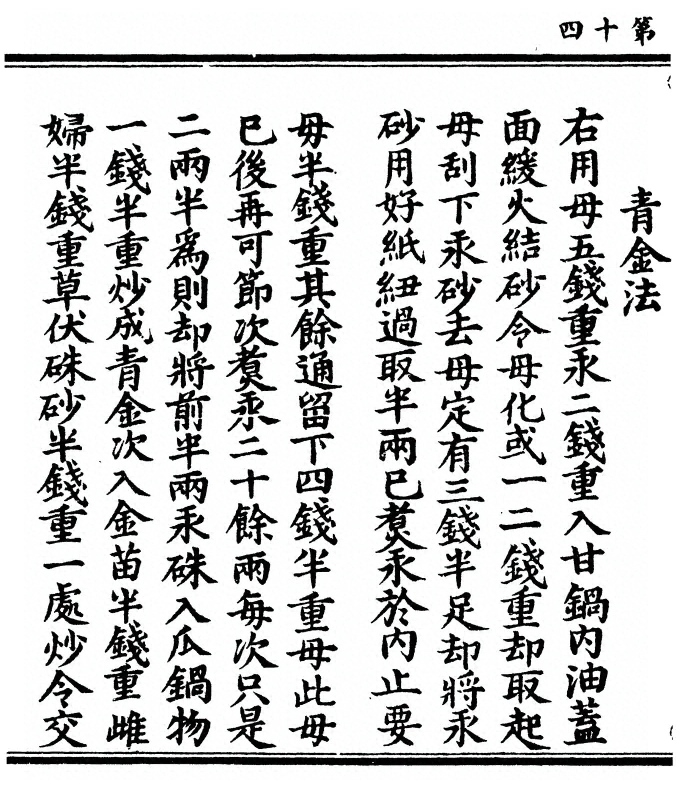 第十四
青金法
右用母五錢重汞二錢重入甘鍋内油蓋
面緩火結砂令母化或一二錢重却取起
母刮下汞砂去母定有三錢半足却將汞
砂用好紙紐過取半兩已煑汞於内止要
母半錢重其餘通留下四錢半重母此母
已後再可節次煑汞二十餘兩每次只是
二兩半爲則却將前半兩汞硃入瓜鍋物
一錢半重炒成青金次入金苗半錢重雌
婦半錢重草伏硃砂半錢重一處炒令交